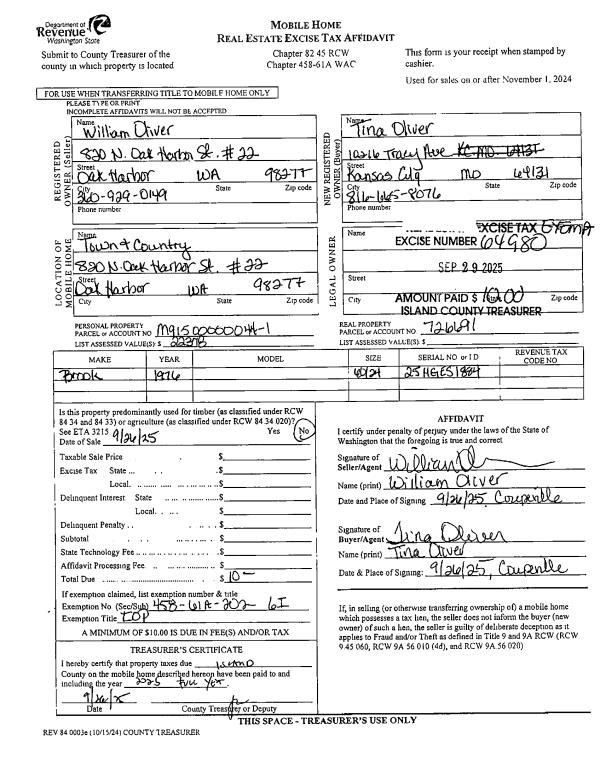 Department of
Revenue
Washington State
MOBILE HOME
REAL ESTATE EXCISE TAX AFFIDAVIT
Submit to County Treasurer of the
county in which property is located
Chapter 82 45 RCW
Chapter 458-61A WAC
This form is your receipt when stamped by
cashier.
Used for sales on or after November 1, 2024
FOR USE WHEN TRANSFERRING TITLE TO MOBILE HOME ONLY
PLEASE TYPE OR PRINT
INCOMPLETE AFFIDAVITS WILL NOT BE ACCEPTED
REGISTERED
OWNER (Seller)
Name
William Oliver
820 N. Oak Harbor St. # 22
Street
Oak Harbor WA 98277
City State Zip code
360-929-0149
Phone number
NEW REGISTERED
OWNER (Buyer)
Name
Tina Oliver
10216 Tracy Ave KC MO 64131
Street
Kansas City MO 64131
City State Zip code
816-665-8076
Phone number
LOCATION OF
MOBILE HOME
Name
Town & Country
820 N. Oak Harbor St. # 22
Street
Oak Harbor WA 98277
City State Zip code
LEGAL OWNER
Name
EXCISE TAX EXEMPT
EXCISE NUMBER 64980
SEP 29 2025
Street
AMOUNT PAID $ 10.00
ISLAND COUNTY TREASURER
City Zip code
PERSONAL PROPERTY
PARCEL or ACCOUNT NO
LIST ASSESSED VALUE(S) $
REAL PROPERTY
PARCEL or ACCOUNT NO 726691
LIST ASSESSED VALUE(S) $
MAKE YEAR MODEL SIZE SERIAL NO or ID REVENUE TAX CODE NO
Brook 1976 60/24
Is this property predominantly used for timber (as classified under RCW
84 34 and 84 33) or agriculture (as classified under RCW 84 34 020)?
See ETA 3215 Yes No
Date of Sale 9/26/25
Taxable Sale Price $
Excise Tax State $
Local $
Delinquent Interest State $
Local $
Delinquent Penalty $
Subtotal $
State Technology Fee $
Affidavit Processing Fee $
Total Due $ 10-
If exemption claimed, list exemption number & title
Exemption No (Sec/Sub) 458-61A-202-6I
Exemption Title
A MINIMUM OF $10.00 IS DUE IN FEE(S) AND/OR TAX
AFFIDAVIT
I certify under penalty of perjury under the laws of the State of
Washington that the foregoing is true and correct
Signature of
Seller/Agent
Name (print) William Oliver
Date and Place of Signing 9/26/25 Coupeville
Signature of
Buyer/Agent Tina Oliver
Name (print) Tina Oliver
Date & Place of Signing: 9/26/25, Coupeville
If, in selling (or otherwise transferring ownership of) a mobile home
which possesses a tax lien, the seller does not inform the buyer (new
owner) of such a lien, the seller is guilty of deliberate deception as it
applies to Fraud and/or Theft as defined in Title 9 and 9A RCW (RCW
9.45 060, RCW 9A 56 010 (4d), and RCW 9A 56 020)
TREASURER'S CERTIFICATE
I hereby certify that property taxes due Island
County on the mobile home described hereon have been paid to and
including the year 2025 full yr.
9/26/25
Date County Treasurer or Deputy
THIS SPACE - TREASURER'S USE ONLY
REV 84 0003e (10/15/24) COUNTY TREASURER